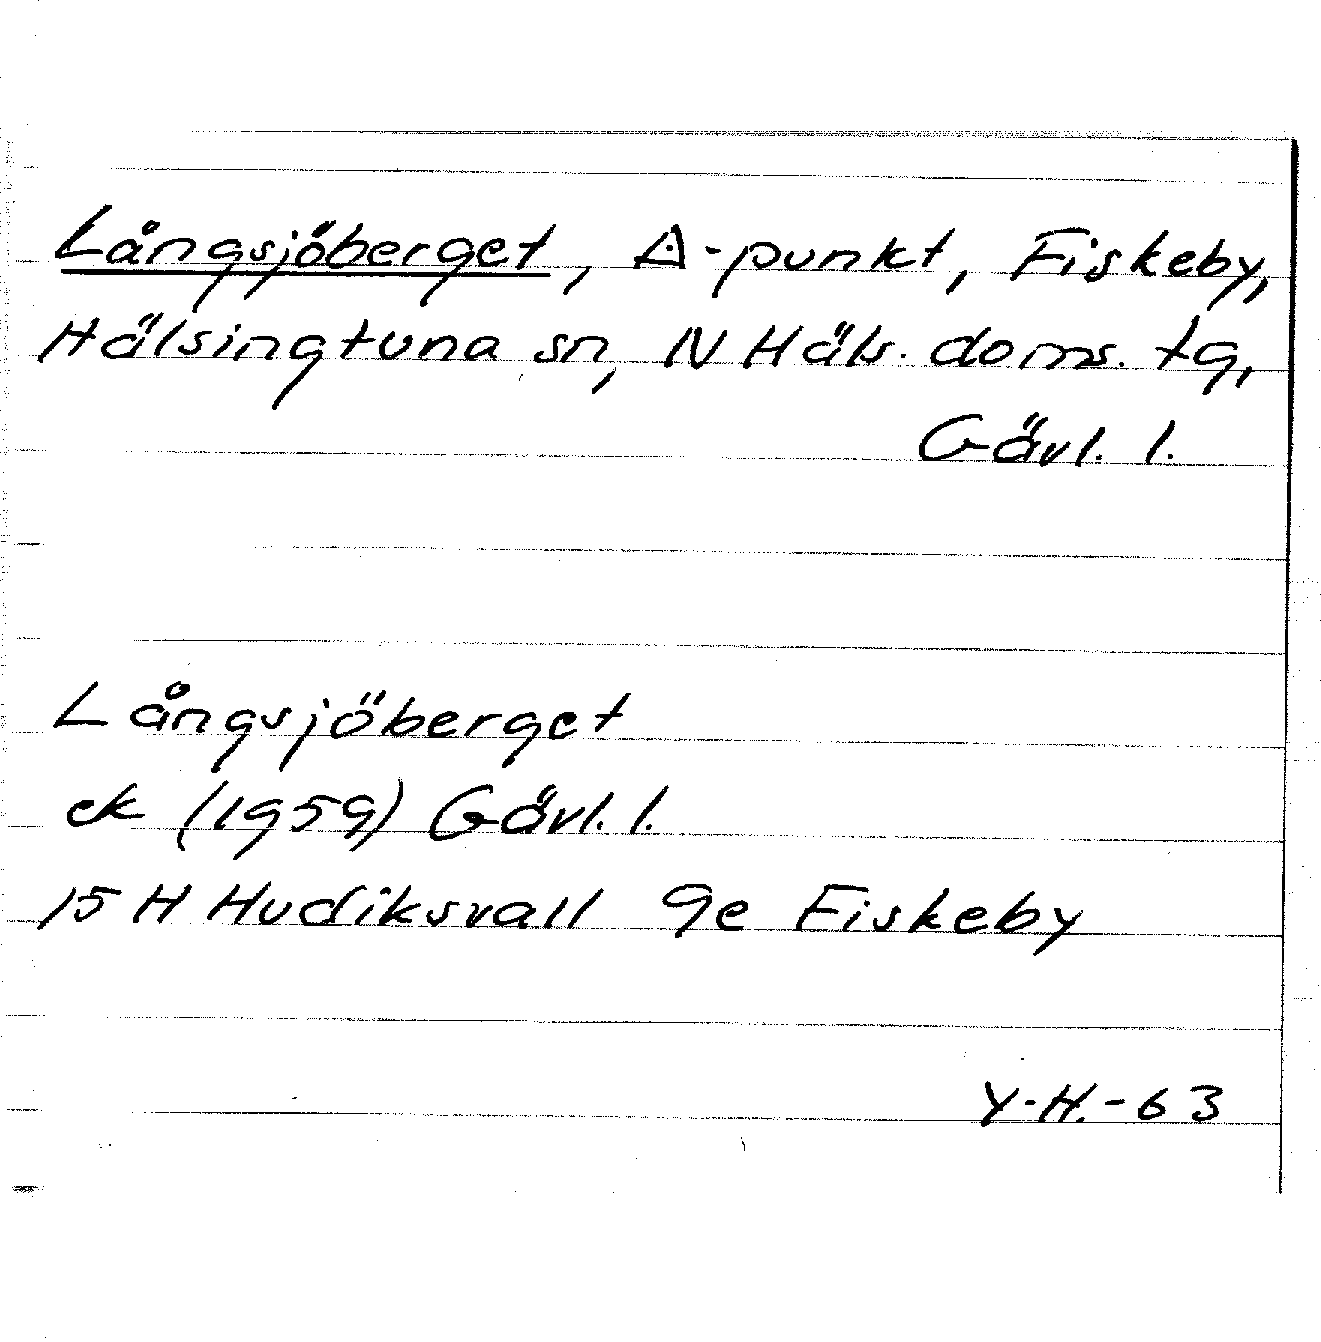 Långsjöberget, A-punkt, Fiskeby,
Hälsingtuna sn, N Häls. doms. tg,
Gävl. l.
Långsjöberget
ek (1959) Gävl. l.
15 H Hudiksvall 9e Fiskeby
Y-H.-63